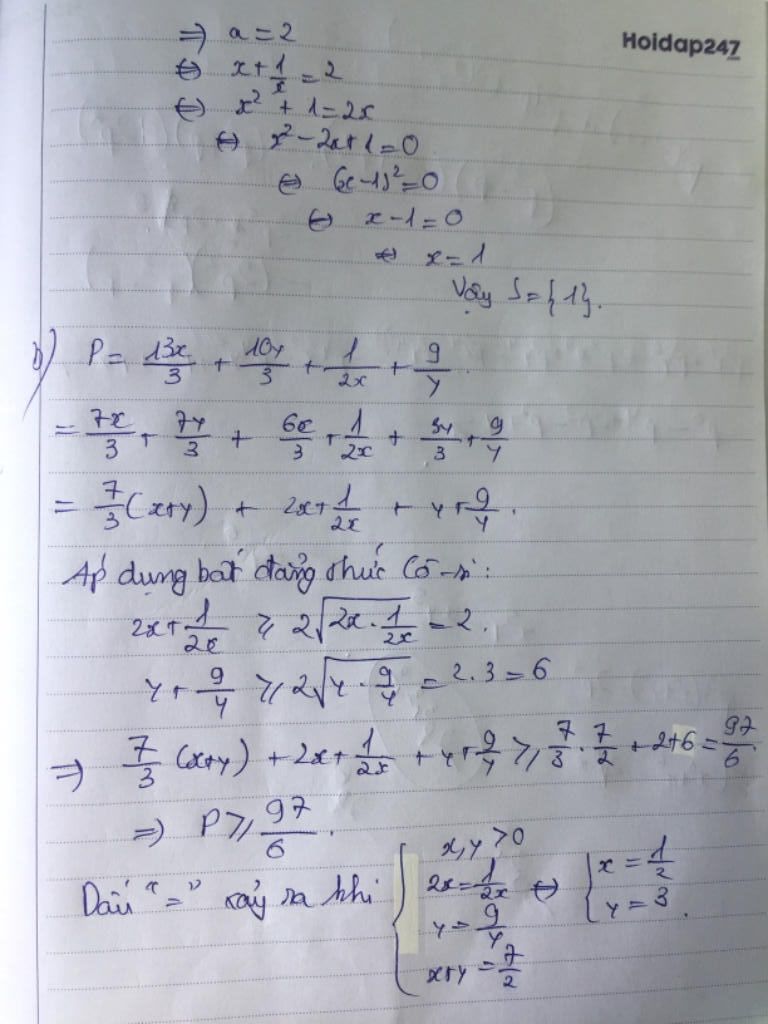 Hoidap247
⇒ a = 2
⇔ x + 1/x = 2
⇔ x² + 1 = 2x
⇔ x² - 2x + 1 = 0
⇔ (x - 1)² = 0
⇔ x - 1 = 0
⇔ x = 1
Vậy S = {1}.
b) P = 13x/3 + 10y/3 + 1/2x + 9/y.
= 7x/3 + 7y/3 + 6x/3 + 1/2x + 3y/3 + 9/y
= 7/3 (x+y) + 2x + 1/2x + y + 9/y.
Áp dụng bất đẳng thức Cô-si:
2x + 1/2x ≥ 2√(2x · 1/2x) = 2.
y + 9/y ≥ 2√(y · 9/y) = 2.3 = 6
⇒ 7/3 (x+y) + 2x + 1/2x + y + 9/y ≥ 7/3 · 7/2 + 2+6 = 97/6.
⇒ P ≥ 97/6.
Dấu "=" xảy ra khi { x, y > 0
2x = 1/2x
y = 9/y
x+y = 7/2
⇔ { x = 1/2
y = 3.